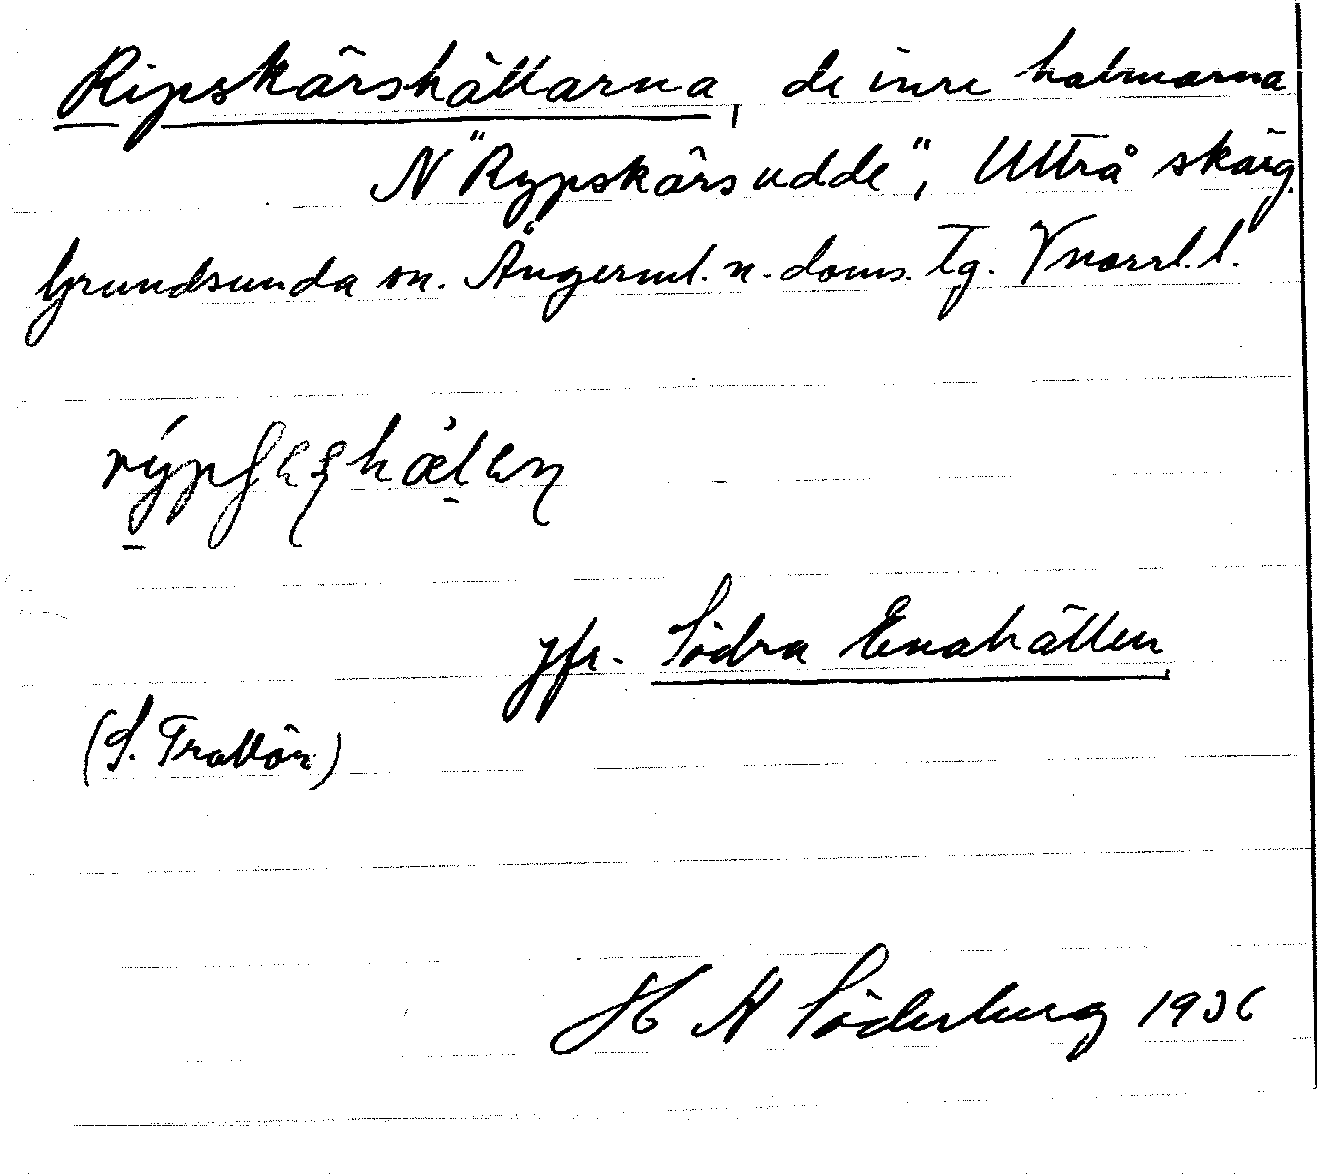 Ripskärshällarna, de inre holmarna
N "Rypskärsudde", Ultrå skärg.
Grundsunda sn. Ångerml. n. doms. Tg. Vnorrl. l.
jfr. Södra Enahällen
(S. Trallön)
H N Söderberg 1936